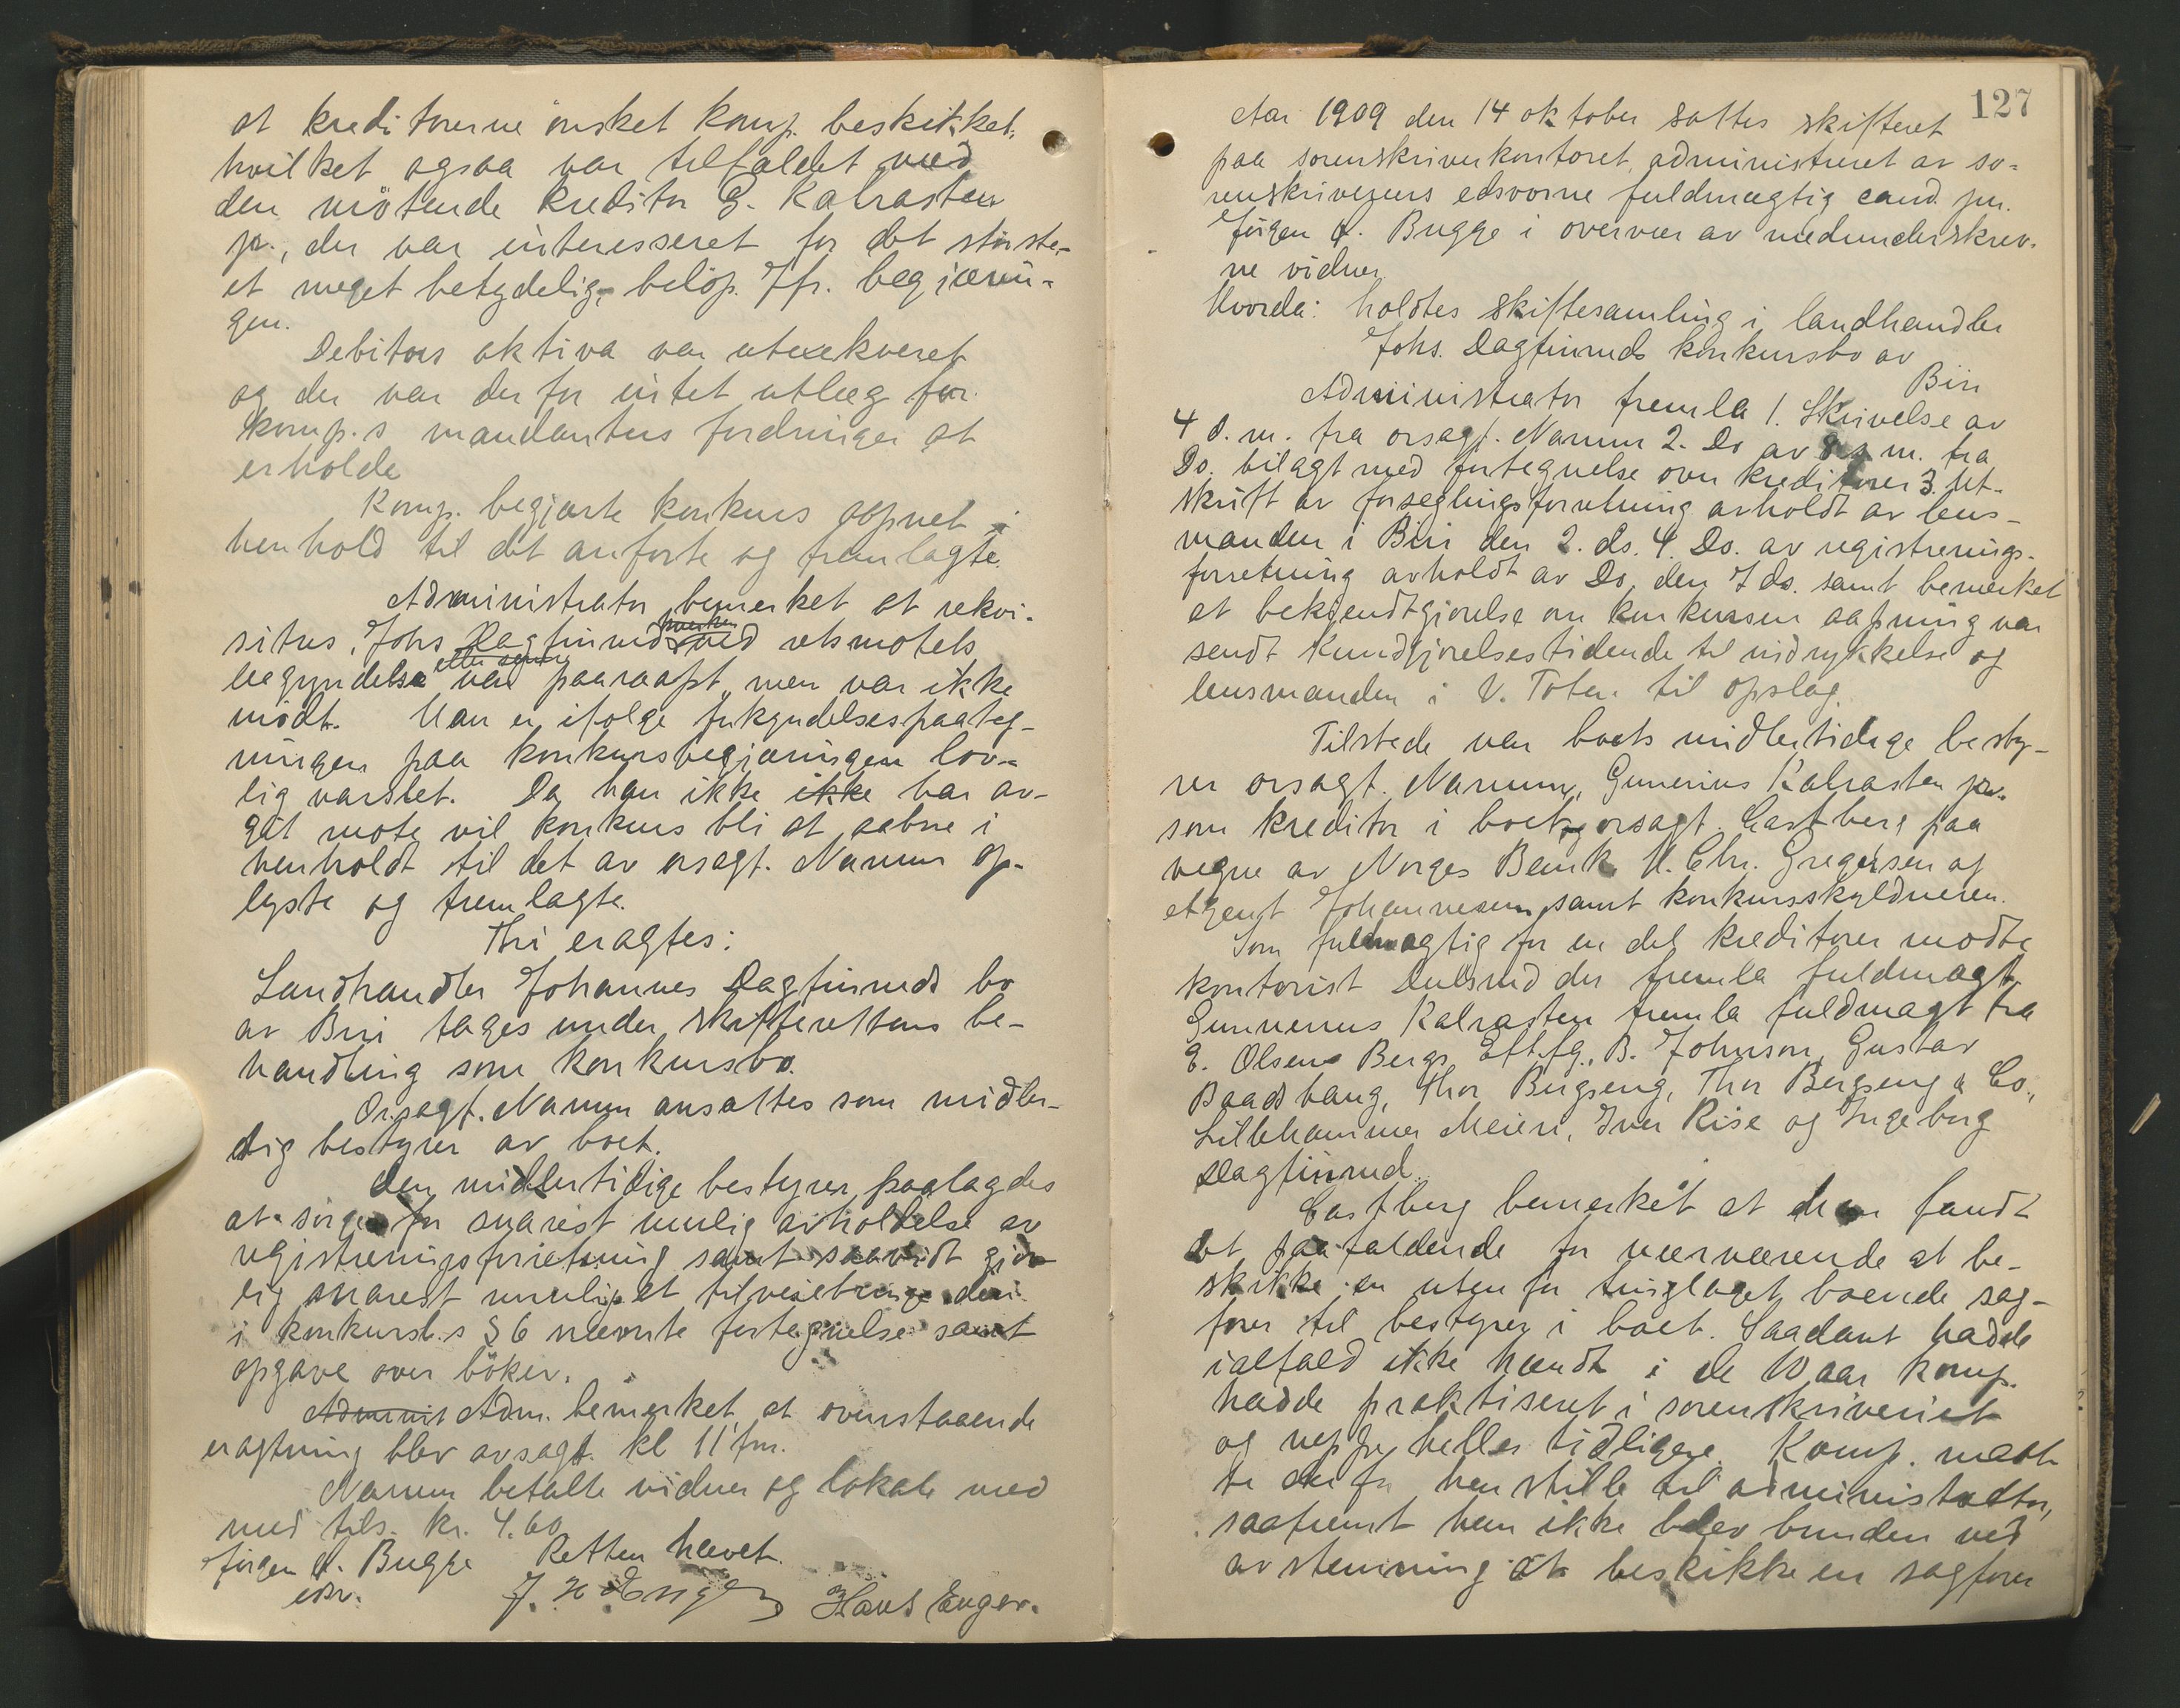 at kreditorerne ønsket komp. beskikket,
hvilket ogsaa var tilfældet med
den møtende kreditor G. Kalrasten
jr., der var interesseret for det største-
et meget betydelig beløp. Jfr. begjærin-
gen.
Debitors aktiva var utexekveret
og der var derfor intet utlæg for
komp.s mandanters fordringer at
erholde
Komp. begjærte konkurs aapnet i
henhold til det anførte og fremlagte.
Administrator bemerket at rekvi-
situs, Johs Dagfinrud hverken ved retsmøtets
begyndelse eller senere var paaraapt, men var ikke
mødt. Han er ifølge forkyndelsespaateg-
ningen paa konkursbegjæringen lov-
lig varslet. Da han ikke ikke har av-
git møte vil konkurs bli at aabne i
henholdt til det av orsagf. Narum op-
lyste og fremlagte.
Thi eragtes:
Landhandler Johannes Dagfinruds bo
av Biri tages under skifterettens be-
handling som konkursbo.
Orsagf. Narum ansattes som midler-
tidig bestyrer av boet.
Den midlertidige bestyrer paalagdes
at sørge for snarest mulig avholdelse av
registreringsforretning samt saavidt gjør-
lig snarest mulig at tilveiebringe den
i konkursl.s § 6 nævnte fortegnelse samt
opgave over bøker.
Adminis Adm. bemerket at ovenstaaende
eragtning blev avsagt kl 11 fm.
Narum betalte vidner og lokale med
med tils. kr. 4.60
Retten hævet.
Jørgen A. Bugge
edsv.
Hans Enger.
127
Aar 1909 den 14 oktober sattes skifteret
paa sorenskriverkontoret, administreret av so-
renskriverens edsvorne fuldmægtig cand. jur.
Jørgen A. Bugge i overvær av medunderskrev-
ne vidner
Hvorda: holdtes skiftesamling i landhandler
Johs. Dagfinruds konkursbo av
Biri
Administrator fremla 1. Skrivelse av
4 d.m. fra orsagf. Narum 2. Do av 8 d.m. fra
Do. bilagt med fortegnelse over kreditorer 3. Ut-
skrift av forseglingsforretning avholdt av lens-
manden i Biri den 2. ds. 4. Do. av registrerings-
forretning avholdt av Do. den 7 ds. samt bemerket
at bekjendtgjørelse om konkursens aapning var
sendt Kundgjørelsestidende til indrykkelse og
lensmanden i V. Toten til opslag.
Tilstede var boets midlertidige besty-
rer orsagf. Narum, Gunerius Kalrasten jr.
som kreditor i boet, orsagf. Castberg paa
vegne av Norges Bank, H. Chr. Gregersen og
Agent Johannesen samt konkursskyldneren.
Som fuldmægtig for en del kreditorer mødte
kontorist Dulsrud der fremla fuldmagt
Gunnerius Kalrasten fremla fuldmagt fra
E. Olsens Bergs Eftfg., B. Johnson, Gustav
Baadshaug, Thor Bergseng, Thor Bergseng & Co.,
Lillehammer Meieri, Iver Rise og Ingeborg
Dagfinrud.
Castberg bemerket at han fandt
det paafaldende for nærværende at be-
skikke en uten for tinglaget boende sag-
fører til bestyrer i boet. Saadant hadde
ialfald ikke hændt i de 10 aar komp.
hadde praktiseret i sorenskriveriet
og neppe heller tidligere. Komp. maat-
te derfor henstille til administrator,
saafremt han ikke blev bunden ved
avstemning at beskikke en sagfører